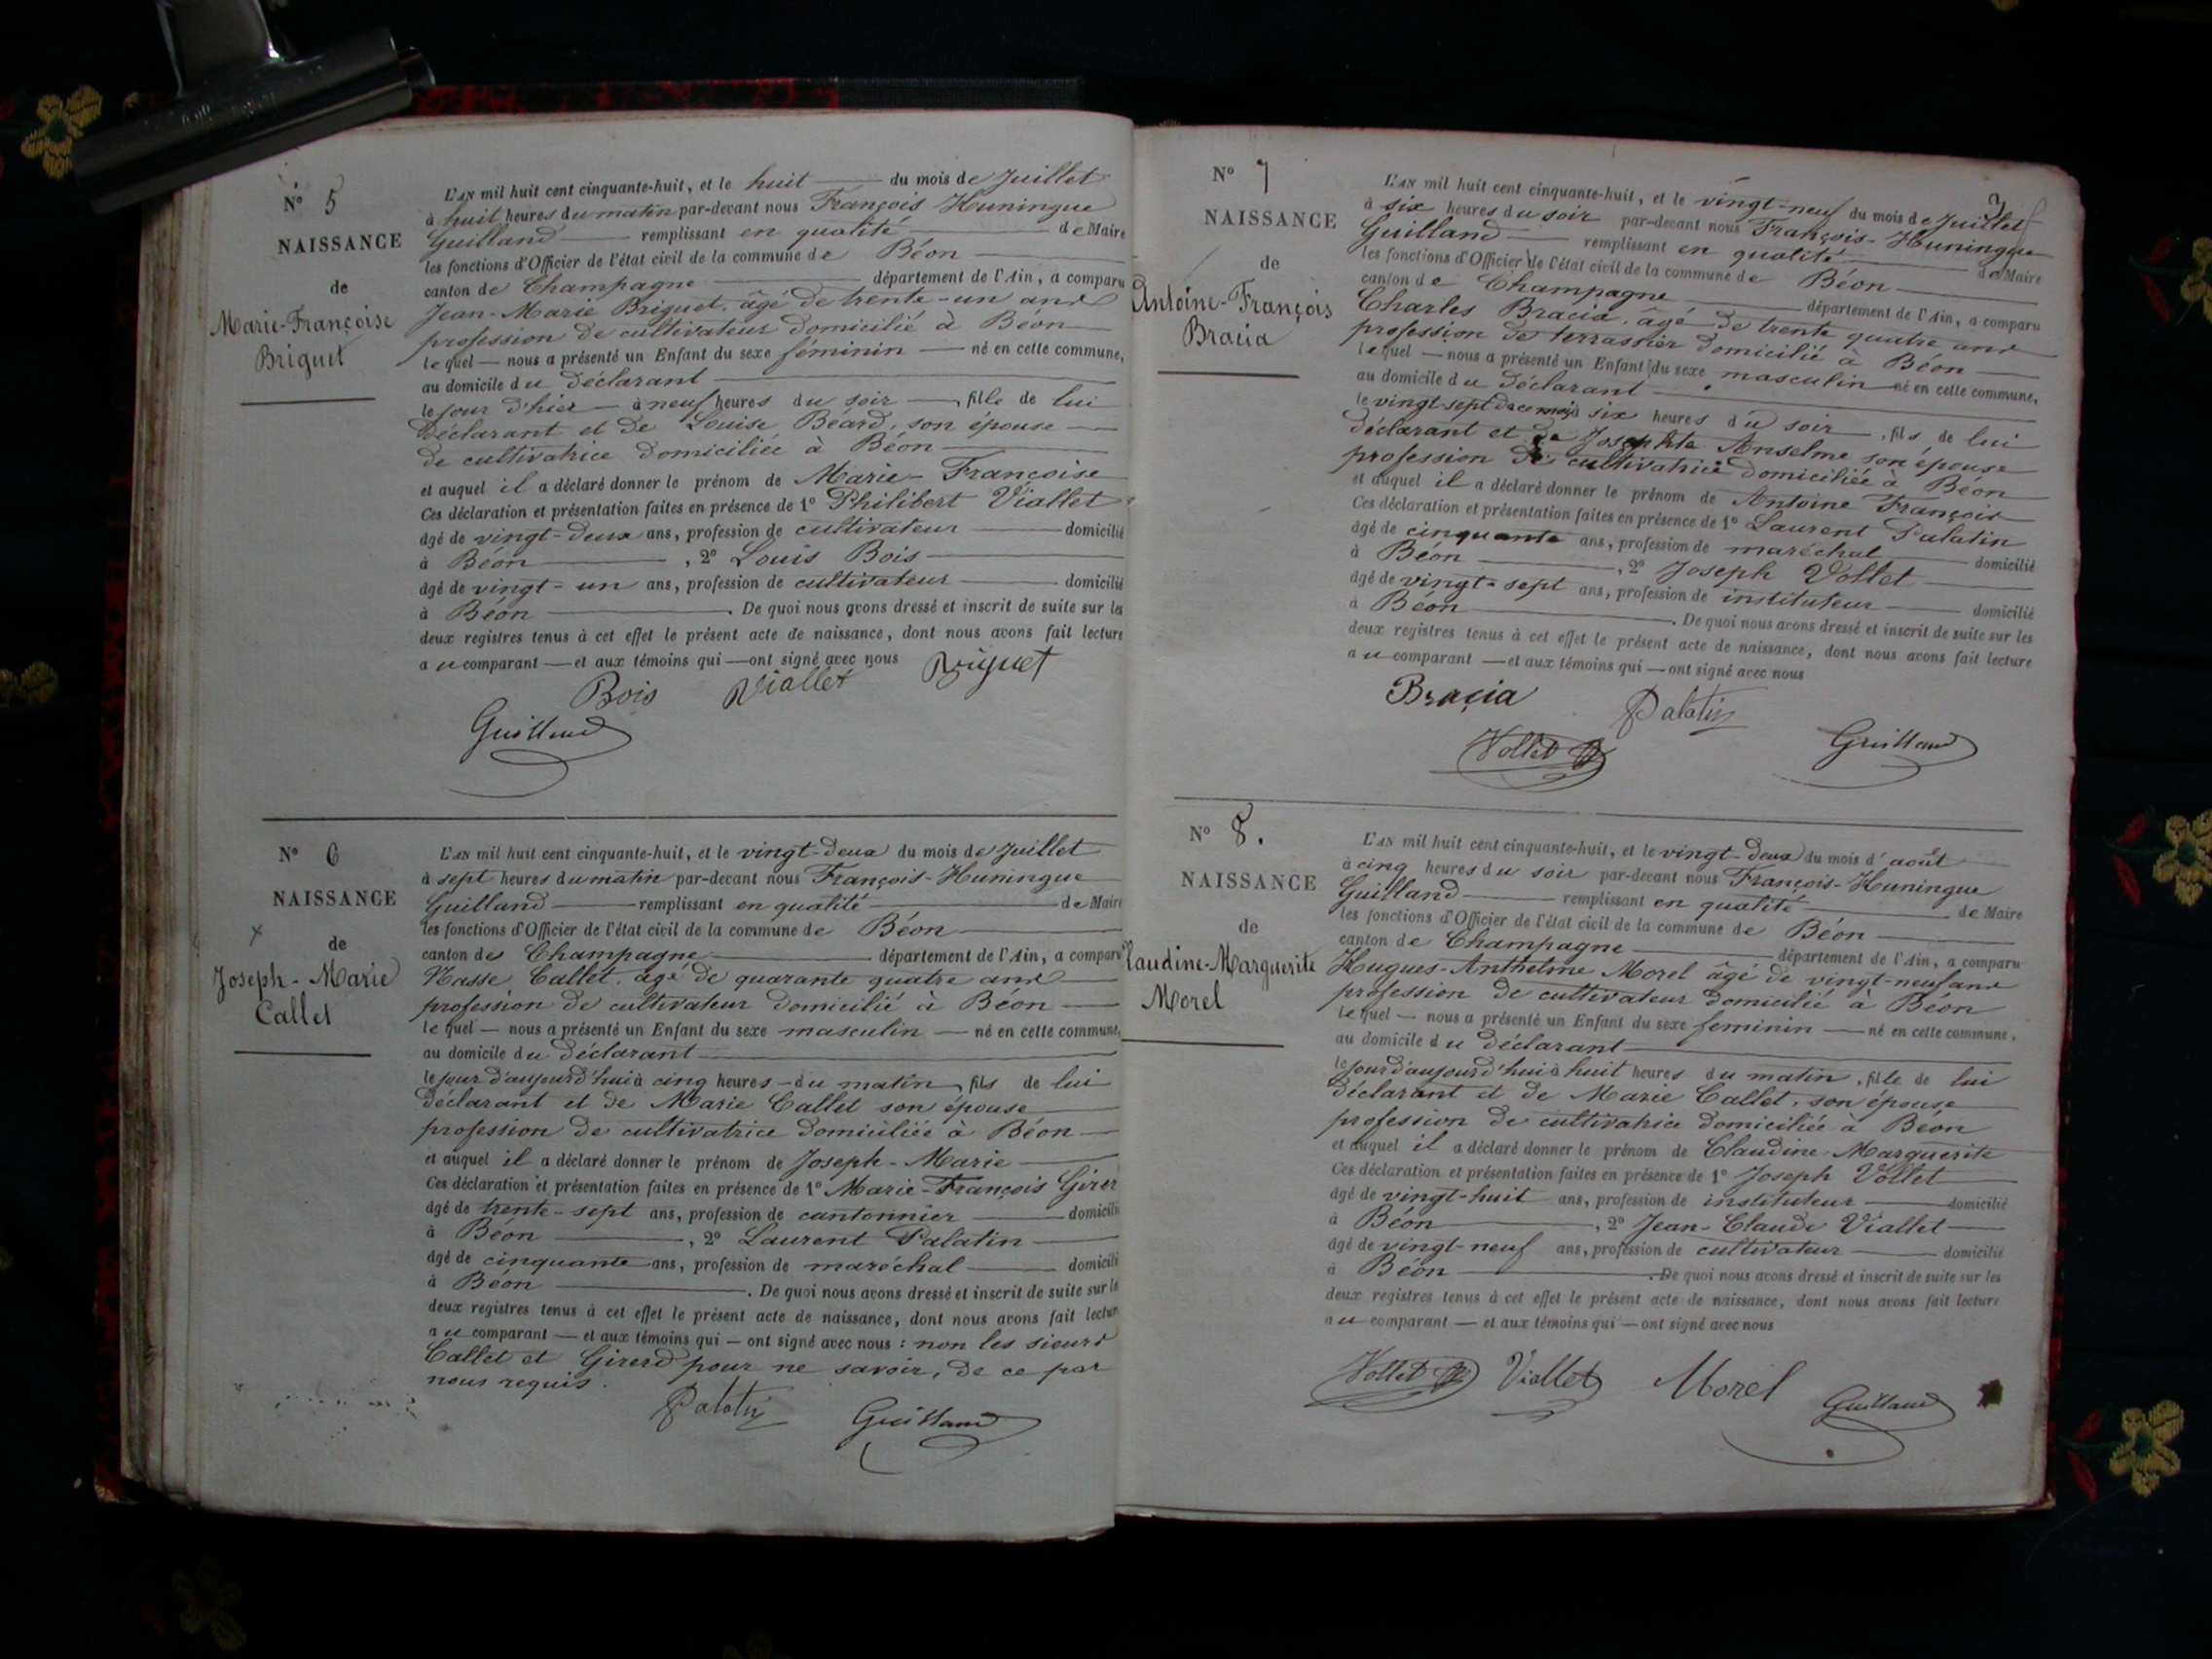 N° 5
NAISSANCE
de
Marie-Françoise
Briguet
L'AN mil huit cent cinquante-huit, et le huit du mois de Juillet
à huit heures du matin par-devant nous François Huningue
Guilland remplissant en qualité de Maire
les fonctions d'Officier de l'état civil de la commune de Béon
canton de Champagne département de l'Ain, a comparu
Jean-Marie Briguet, âgé de trente-un ans
profession de cultivateur domicilié à Béon
lequel nous a présenté un Enfant du sexe féminin né en cette commune,
au domicile du déclarant
le jour d'hier à neuf heures du soir, fille de lui
déclarant et de Louise Béard, son épouse
de cultivatrice domiciliée à Béon
et auquel il a déclaré donner le prénom de Marie-Françoise
Ces déclaration et présentation faites en présence de 1° Philibert Viallet
âgé de vingt-deux ans, profession de cultivateur domicilié
à Béon, 2° Louis Bois
âgé de vingt-un ans, profession de cultivateur domicilié
à Béon. De quoi nous avons dressé et inscrit de suite sur les
deux registres tenus à cet effet le présent acte de naissance, dont nous avons fait lecture
au comparant et aux témoins qui ont signé avec nous
Bois Viallet Briguet
Guilland
N° 6
NAISSANCE
de
Joseph-Marie
Callet
L'AN mil huit cent cinquante-huit, et le vingt-deux du mois de Juillet
à sept heures du matin par-devant nous François-Huningue
Guilland remplissant en qualité de Maire
les fonctions d'Officier de l'état civil de la commune de Béon
canton de Champagne département de l'Ain, a comparu
Nasse Callet, âgé de quarante quatre ans
profession de cultivateur domicilié à Béon
lequel nous a présenté un Enfant du sexe masculin né en cette commune,
au domicile du déclarant
le jour d'aujourd'hui à cinq heures du matin, fils de lui
déclarant et de Marie Callet son épouse
profession de cultivatrice domiciliée à Béon
et auquel il a déclaré donner le prénom de Joseph-Marie
Ces déclaration et présentation faites en présence de 1° Marie-François Girer
âgé de trente-sept ans, profession de cantonnier domicilié
à Béon, 2° Laurent Palatin
âgé de cinquante ans, profession de maréchal domicilié
à Béon. De quoi nous avons dressé et inscrit de suite sur le
deux registres tenus à cet effet le présent acte de naissance, dont nous avons fait lecture
au comparant et aux témoins qui ont signé avec nous : non les sieurs
Callet et Girerd pour ne savoir, de ce par
nous requis.
Palatin Guilland
N° 7
NAISSANCE
de
Antoine-François
Bracia
L'AN mil huit cent cinquante-huit, et le vingt-neuf du mois de Juillet
à six heures du soir par-devant nous François-Huningue
Guilland remplissant en qualité de Maire
les fonctions d'Officier de l'état civil de la commune de Béon
canton de Champagne département de l'Ain, a comparu
Charles Bracia, âgé de trente quatre ans
profession de terrassier domicilié à Béon
lequel nous a présenté un Enfant du sexe masculin né en cette commune,
au domicile du déclarant
le vingt-sept de ce mois à six heures du soir, fils de lui
déclarant et de Josephte Anselme son épouse
profession de cultivatrice domiciliée à Béon
et auquel il a déclaré donner le prénom de Antoine François
Ces déclaration et présentation faites en présence de 1° Laurent Palatin
âgé de cinquante ans, profession de maréchal domicilié
à Béon, 2° Joseph Vollet
âgé de vingt-sept ans, profession de instituteur domicilié
à Béon. De quoi nous avons dressé et inscrit de suite sur les
deux registres tenus à cet effet le présent acte de naissance, dont nous avons fait lecture
au comparant et aux témoins qui ont signé avec nous
Bracia Palatin
Vollet Guilland
N° 8.
NAISSANCE
de
Claudine-Marguerite
Morel
L'AN mil huit cent cinquante-huit, et le vingt-deux du mois d'août
à cinq heures du soir par-devant nous François-Huningue
Guilland remplissant en qualité de Maire
les fonctions d'Officier de l'état civil de la commune de Béon
canton de Champagne département de l'Ain, a comparu
Hugues-Anthelme Morel âgé de vingt-neuf ans
profession de cultivateur domicilié à Béon
lequel nous a présenté un Enfant du sexe féminin né en cette commune,
au domicile du déclarant
le jour d'aujourd'hui à huit heures du matin, fille de lui
déclarant et de Marie Callet, son épouse
profession de cultivatrice domiciliée à Béon
et auquel il a déclaré donner le prénom de Claudine Marguerite
Ces déclaration et présentation faites en présence de 1° Joseph Vollet
âgé de vingt-huit ans, profession de instituteur domicilié
à Béon, 2° Jean-Claude Viallet
âgé de vingt-neuf ans, profession de cultivateur domicilié
à Béon. De quoi nous avons dressé et inscrit de suite sur les
deux registres tenus à cet effet le présent acte de naissance, dont nous avons fait lecture
au comparant et aux témoins qui ont signé avec nous
Vollet Viallet Morel Guilland